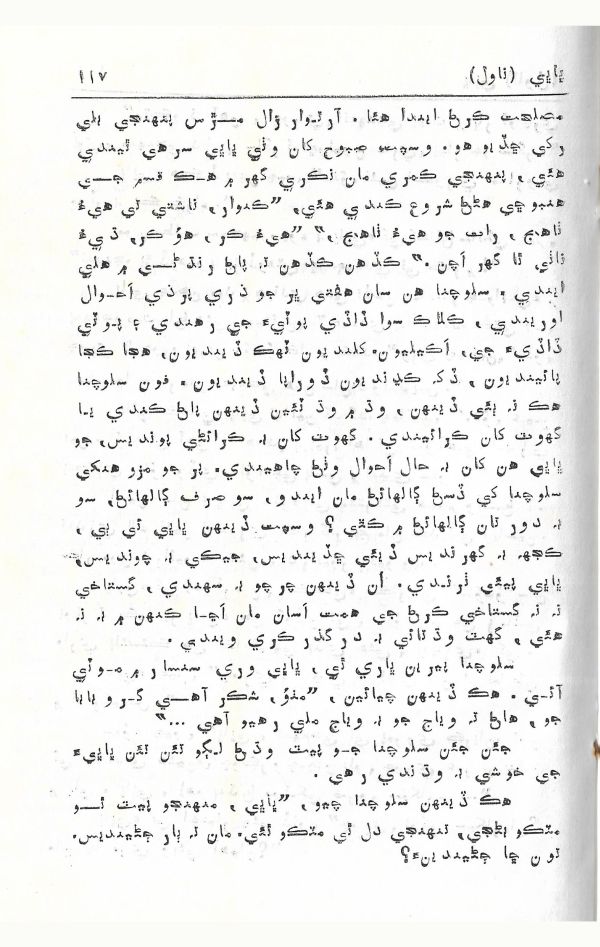 ڀاڀي (ناول) ١١٧
مصلحت ڪرڻ ايندا هئا . آرتوار زال مڙس پنهنجي ڀلي
رکي ڇڏيو هو . وسپت صبوح کان وٺي ڀاڀي سرهي ٿيندي
هئي ، پنهنجي ڪمري مان نڪري گهر ۾ هڪ قسم جي
هنبوڇي هڻڻ شروع ڪندي هئي، ”ڪنوار ، ناشتي تي هيءُ
ٺاهيج ، رات جو هيءُ ٺاهيج ،“ ”هيءُ ڪر ، هوُ ڪر، ڌيءُ
ناٺي ٿا گهر اچن .“ ڪڏهن ڪڏهن ته پاڻ رنڌڻي ۾ هلي
ايندي . سلوچنا هن سان هفتي ڀر جو ذري پرذي احوال
اوريندي ، ڪلاڪ سوا ڏاڏي پوٽيءَ جي رهندي ۽ پوٽي
ڏاڏيءَ جي، اڪيليون کلنديون ٽهڪ ڏينديون، هڃا ڪڃا
پائينديون ، ڏک ڪڍنديون ڏوراپا ڏينديون . فون سلوچنا
هڪ ته ٻئي ڏينهن ، وڌ ۾ وڌ ٽئين ڏينهن پاڻ ڪندي يا
گهوٽ کان ڪرائيندي . گهوٽ کان به ڪرائڻي پوندس، جو
ڀاڀي هن کان به حال احوال وٺڻ چاهيندي. پر جو مزو هنکي
سلوچنا کي ڏسڻ ڳالهائڻ مان ايندو ، سو صرف ڳالهائڻ، سو
به دور تان ڳالهائڻ ۾ ڪٿي ؟ وسپت ڏينهن ڀاڀي ٽي بي ،
ڪجهه به گهرندس ڏيئي ڇڏيندس، جيڪي به چوندس،
ڀاڀي پيئي ٺرندي . اُن ڏينهن چرچو به سهندي ، گستاخي
ته نه گستاخي ڪرڻ جي همت اسان مان اڃا ڪنهن ۾ به نه
هئي ، گهٽ وڌتائي به درگذر ڪري ويندي .
سلوچنا ٻيرين ڀاري ٿي ، ڀاڀي وري سنسار ۾ موٽي
آئي . هڪ ڏينهن چيائين ، ”منوُ، شڪر آهي گرو بابا
جو ، هاڻ ته وياج جو به وياج ملي رهيو آهي ...“
جئن جئن سلوچنا جو پيٽ وڌڻ لڳو تئن تئن ڀاڀيءَ
جي خوشي به وڌندي رهي .
هڪ ڏينهن سلوچنا چيو ، ”ڀاڀي ، منهنجو پيٽ ٿو
مٽڪو ٻڌجي، تنهنجي دل ٿي مٽڪو ٿئي. مان ته ٻار ڄڻيندس.
تون ڇا ڄڻيندينءَ؟